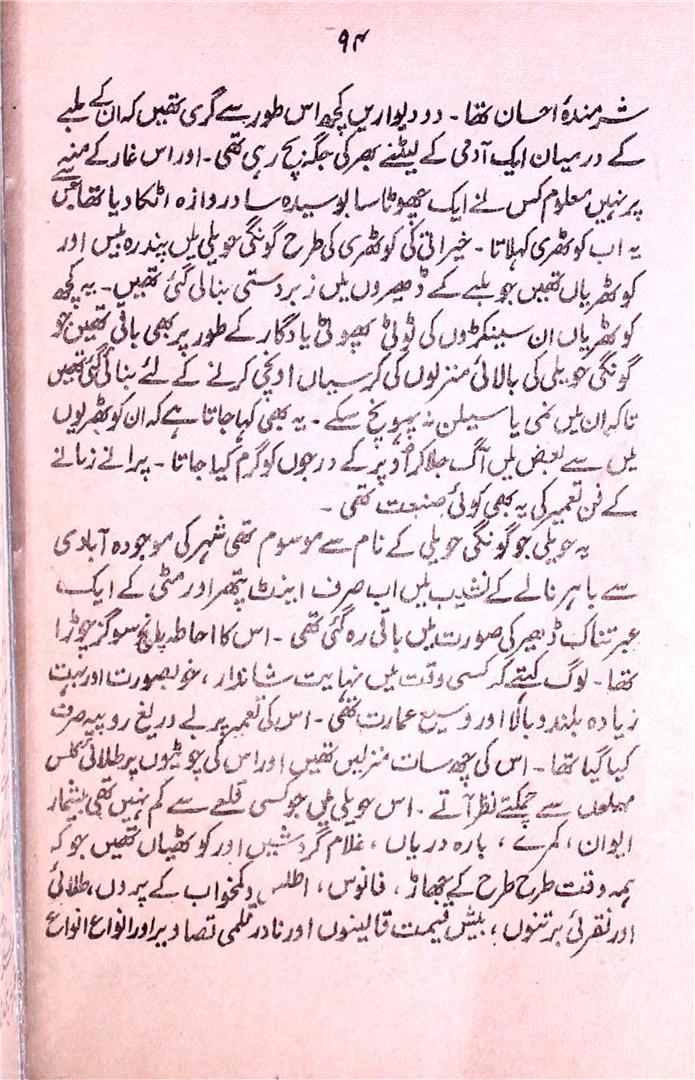 ۹۴
شرمندۂ احسان تھا۔ دو دیواریں کچھ اس طور سے گری تھیں کہ ان کے ملبے
کے درمیان ایک آدمی کے لیٹنے بھر کی جگہ بچ رہی تھی۔ اور اس غار کے منہ
پر نہیں معلوم کس لئے ایک چھوٹا سا بوسیدہ سا دروازہ اٹکا دیا تھا جس سے
یہ اب کوٹھری کہلاتا۔ خیراتی کی کوٹھری کی طرح گونگی حویلی میں پندرہ بیس اور
کوٹھریاں تھیں جو ملبے کے ڈھیروں میں زبردستی بنا لی گئی تھیں۔ یہ کچھ
کوٹھریاں ان سینکڑوں کی ٹوٹی پھوٹی یادگار کے طور پر بھی باقی تھیں جو
گونگی حویلی کی بالائی منزلوں کی کرسیاں اونچی کرنے کے لئے بنائی گئی تھیں
تاکہ ان میں نمی یا سیلن نہ پہونچ سکے۔ یہ بھی کہا جاتا ہے کہ ان کوٹھریوں
میں سے بعض میں آگ جلا کر اوپر کے درجوں کو گرم کیا جاتا۔ پرانے زمانے
کے فن تعمیر کی یہ بھی کوئی صنعت تھی۔
یہ حویلی جو گونگی حویلی کے نام سے موسوم تھی شہر کی موجودہ آبادی
سے باہر نالے کے نشیب میں اب صرف اینٹ پتھر اور مٹی کے ایک
عبرتناک ڈھیر کی صورت میں باقی رہ گئی تھی۔ اس کا احاطہ پانچ سو گز چوڑا
تھا۔ لوگ کہتے کہ کسی وقت میں نہایت شاندار، خوبصورت اور بہت
زیادہ بلند و بالا اور وسیع عمارت تھی۔ اس کی تعمیر پر بے دریغ روپیہ صرف
کیا گیا تھا۔ اس کی چھ سات منزلیں تھیں اور اس کی چوٹیوں پر طلائی کلس
میلوں سے چمکتے نظر آتے۔ اس حویلی میں جو کسی قلعے سے کم نہیں تھی بیشمار
ایوان، کمرے، بارہ دریاں، غلام گردشیں اور کوٹھیاں تھیں جو کہ
ہمہ وقت طرح طرح کے جھاڑ، فانوس، اطلس و کمخواب کے پردوں، طلائی
اور نقرئی برتنوں، بیش قیمت قالینوں اور نادر قلمی تصاویر اور انواع انواع